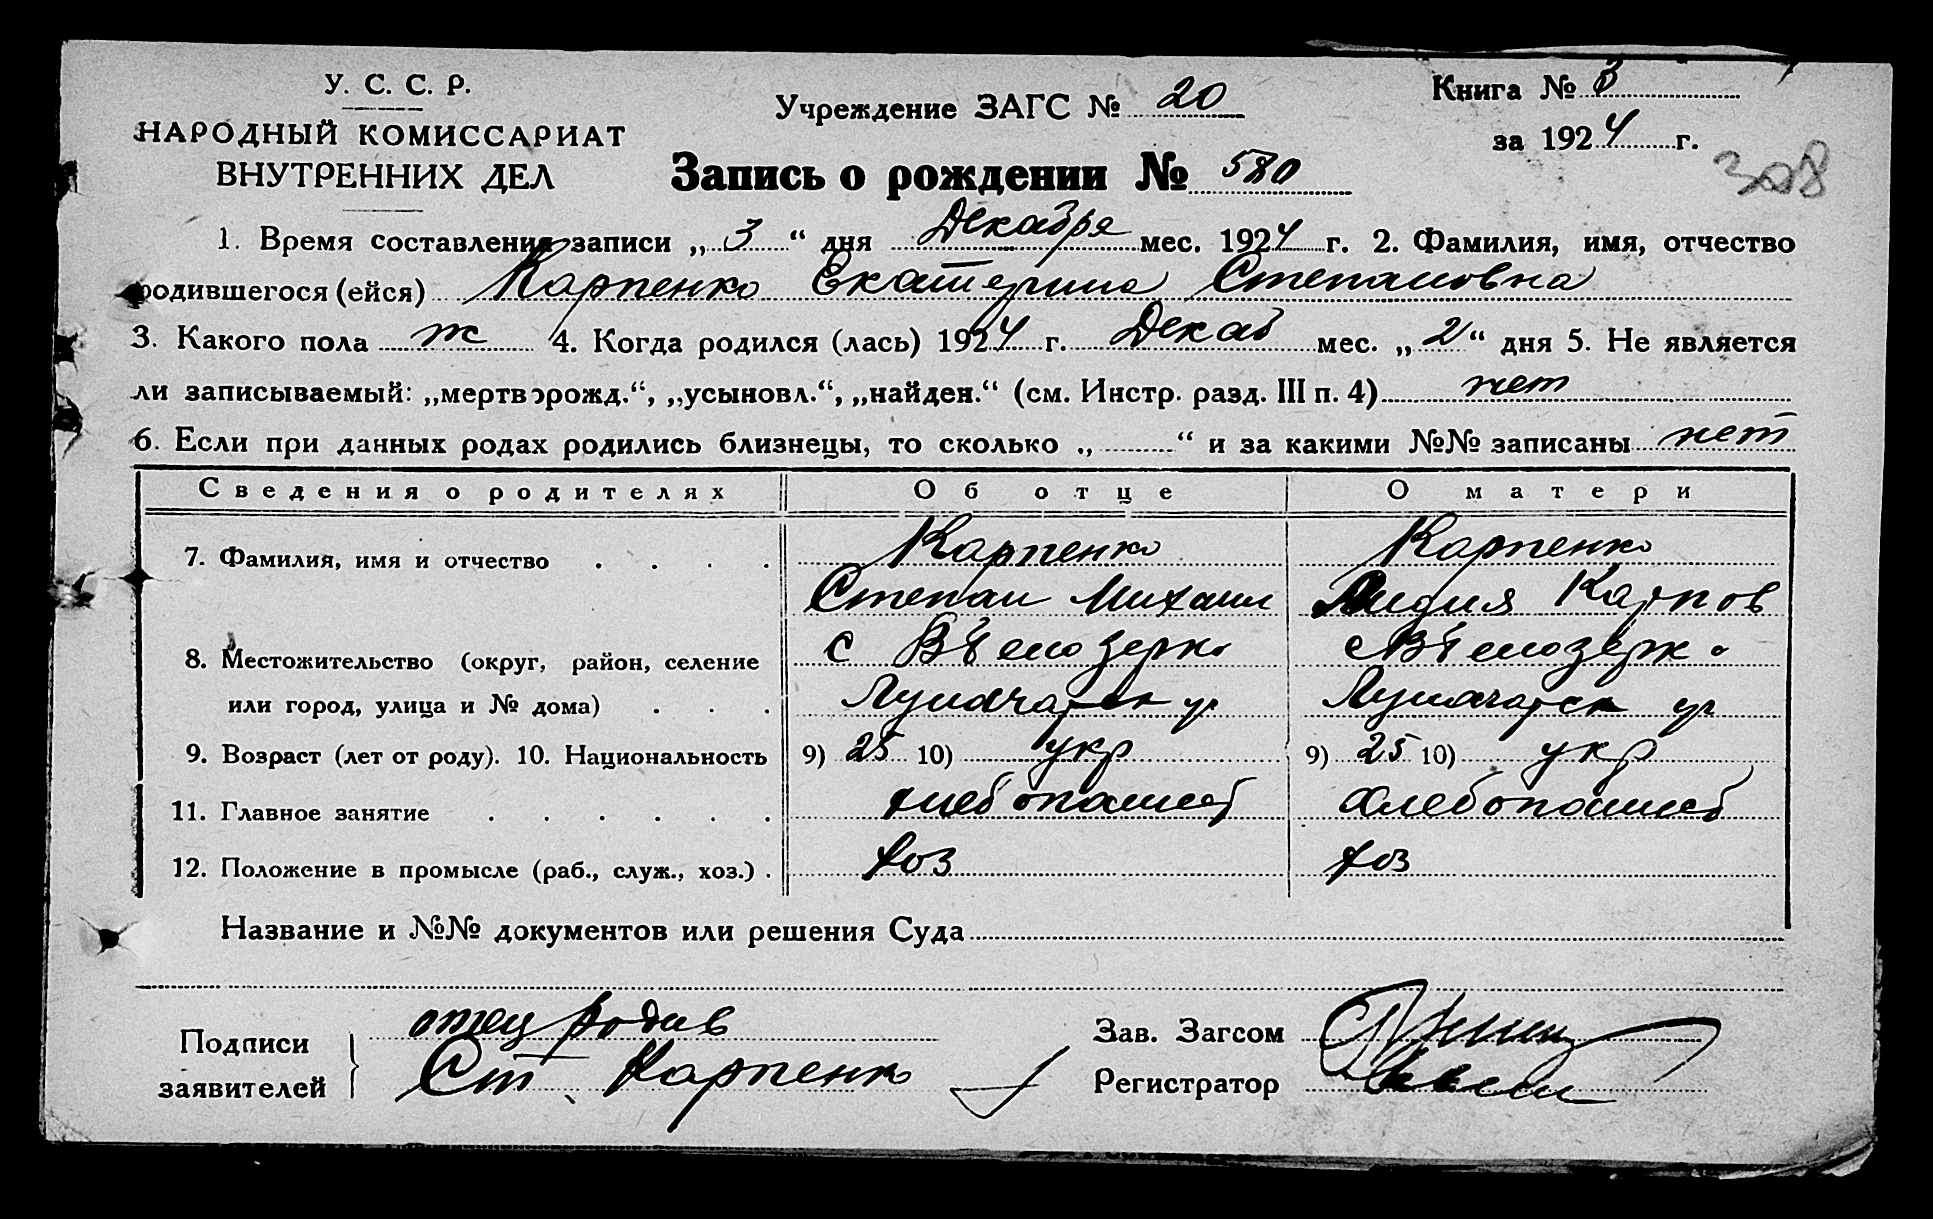 У. С. С. Р.
НАРОДНЫЙ КОМИССАРИАТ
ВНУТРЕННИХ ДЕЛ
Учреждение ЗАГС № 20
Книга № 3
за 1924 г.
Запись о рождении № 580
308
1. Время составления записи „ 3 “ дня Декабря мес. 1924 г. 2. Фамилия, имя, отчество
родившегося (ейся) Карпенко Екатерина Степановна
3. Какого пола ж 4. Когда родился (лась) 1924 г. Декаб мес. „ 2 “ дня 5. Не является
ли записываемый: „мертворожд.“, „усыновл.“, „найден.“ (см. Инстр. разд. III п. 4) нет
6. Если при данных родах родились близнецы, то сколько „ “ и за какими №№ записаны нет
Сведения о родителях Об отце О матери
7. Фамилия, имя и отчество Карпенко Карпенко
Степан Михаил Лидия Карпов
8. Местожительство (округ, район, селение с Вѣлозерка с Вѣлозерка
или город, улица и № дома) Луначарск ул Луначарск ул
9. Возраст (лет от роду). 10. Национальность 9) 25 10) укр 9) 25 10) укр
11. Главное занятие хлебопашеб хлебопашеб
12. Положение в промысле (раб., служ., хоз.) хоз хоз
Название и №№ документов или решения Суда
Подписи
заявителей
отец родив
Ст Карпенко
Зав. Загсом
Регистратор